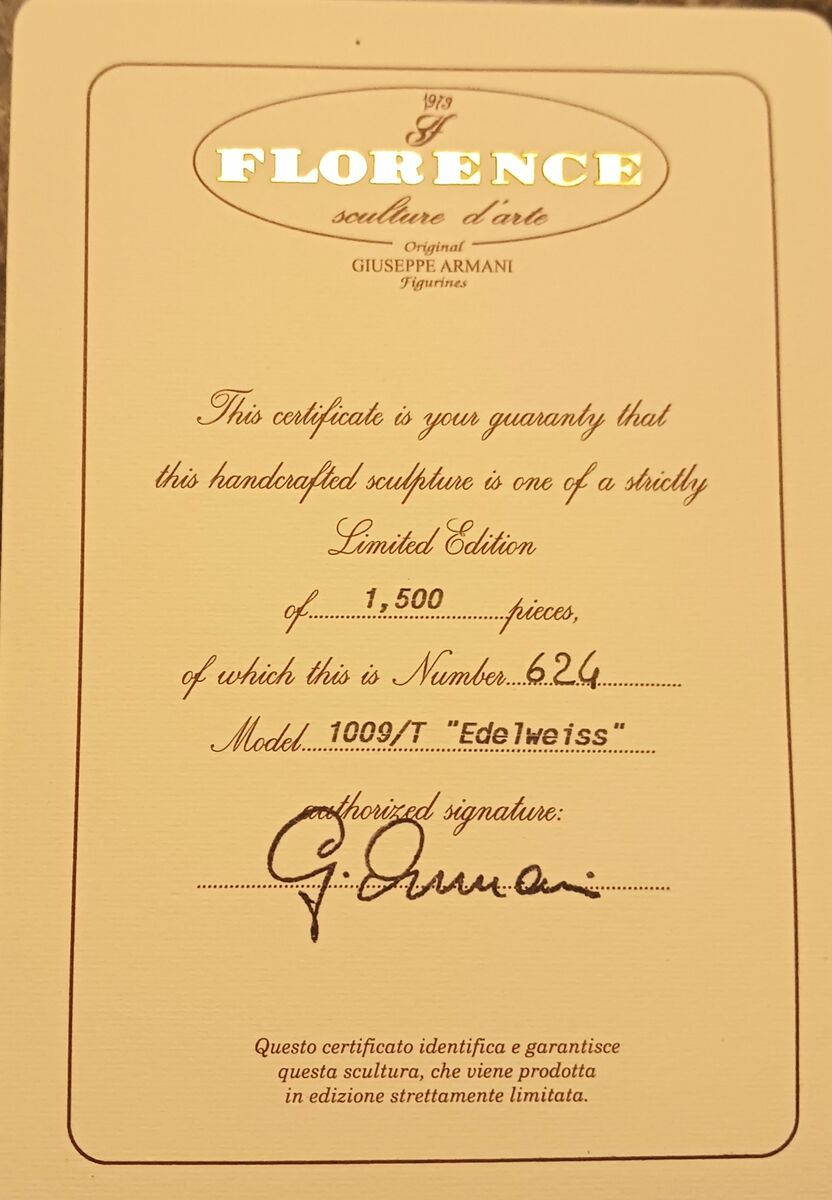 1973
FLORENCE
sculture d'arte
Original
GIUSEPPE ARMANI
Figurines
This certificate is your guaranty that
this handcrafted sculpture is one of a strictly
Limited Edition
of........1,500........pieces,
of which this is Number...624........
Model...1009/T "Edelweiss"....
authorized signature:
G. Armani
Questo certificato identifica e garantisce
questa scultura, che viene prodotta
in edizione strettamente limitata.